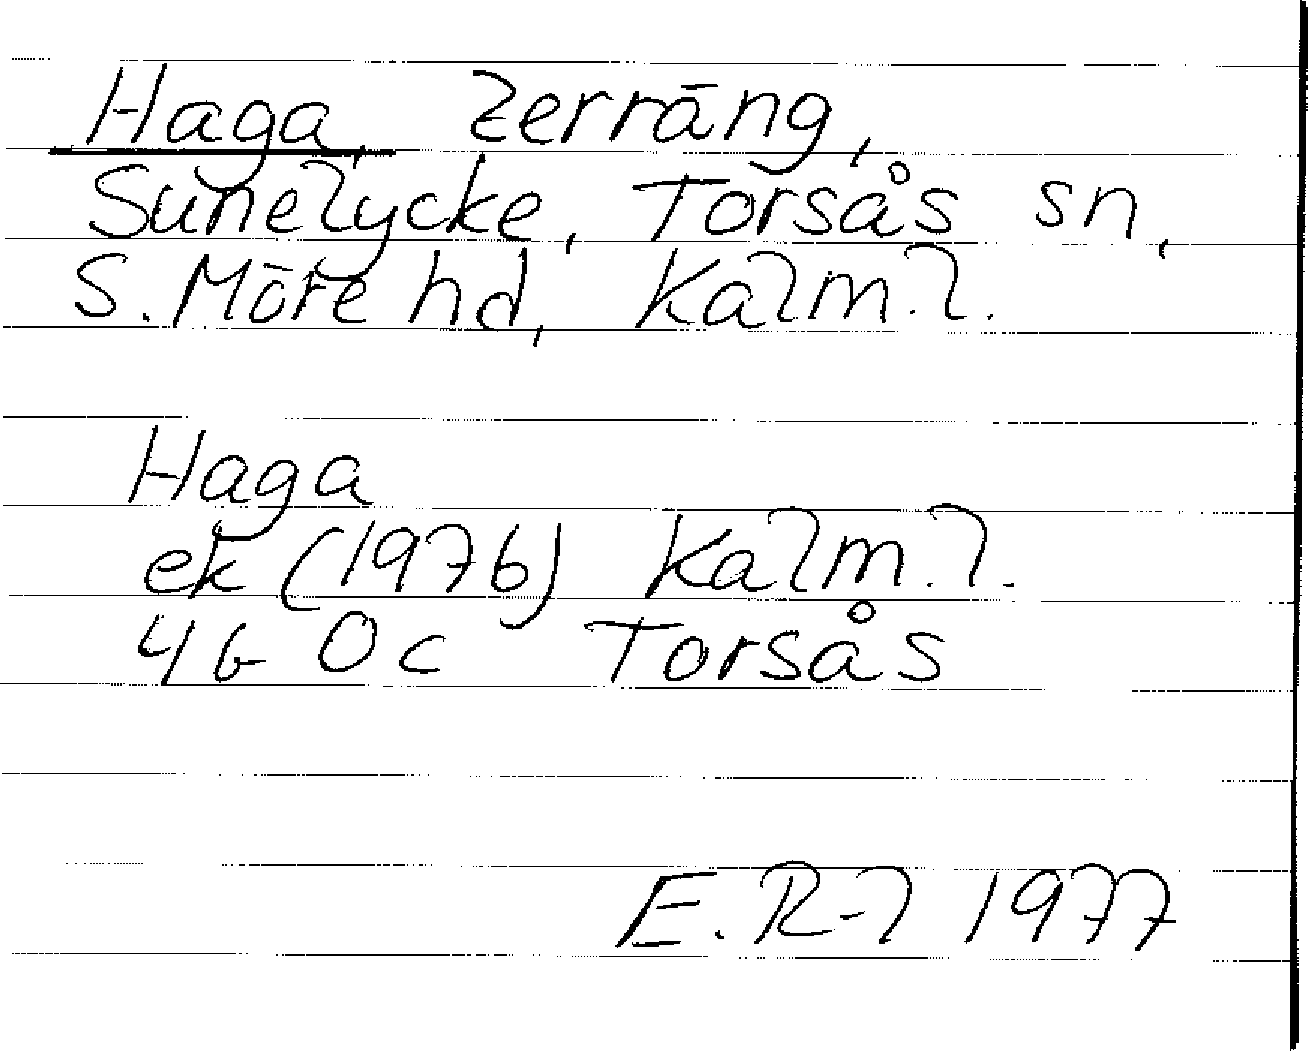 Haga, terräng,
Sunelycke, Torsås sn,
S. Möre hd, Kalm.l.
Haga
ek (1976) Kalm.l.
4G 0c Torsås
E.R-l 1977